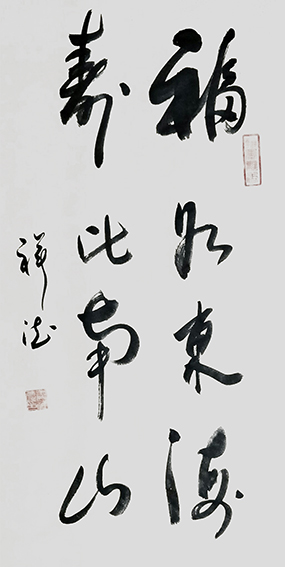 福如东海
寿比南山
祥法